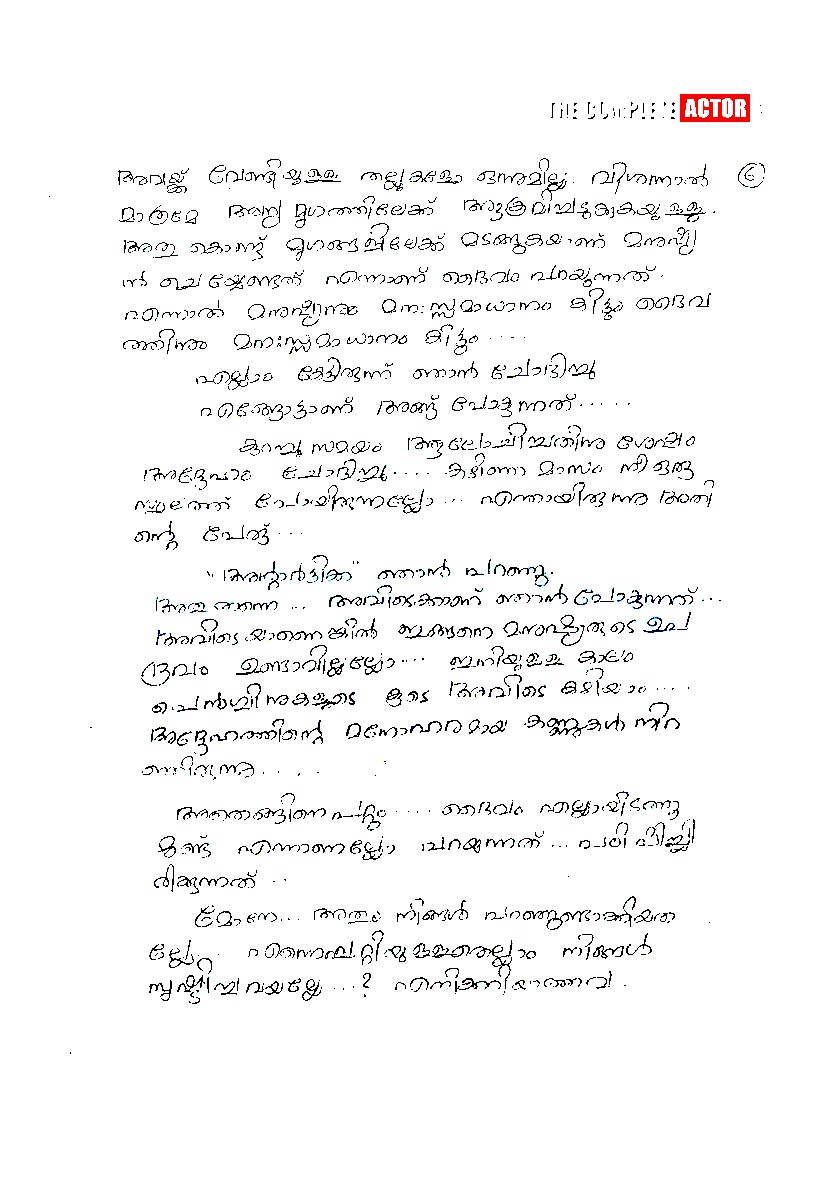 THE COMPLETE ACTOR
അവയ്ക്ക് വേണ്ടിയുള്ള തല്ലുകളോ ഒന്നുമില്ല. വിശന്നാൽ ⑥
മാത്രമേ അന്യ മൃഗത്തിലേക്ക് അടുക്കുകയുള്ളൂ.
അതു കൊണ്ട് മൃഗങ്ങളിലേക്ക് മടങ്ങുകയാണ് മനുഷ്യ
ൻ ചെയ്യേണ്ടത് എന്നാണ് ദൈവം പറയുന്നത്.
എന്നാൽ മനുഷ്യനും മനഃസ്സമാധാനം കിട്ടും ദൈവ
ത്തിനും മനഃസ്സമാധാനം കിട്ടും ....
എല്ലാം കേട്ടിരുന്ന് ഞാൻ ചോദിച്ചു
എങ്ങോട്ടാണ് അങ്ങ് പോകുന്നത് .....
കുറച്ചു സമയം ആലോചിച്ചതിനു ശേഷം
അദ്ദേഹം ചോദിച്ചു .... കഴിഞ്ഞ മാസം നീ ഒരു
സ്ഥലത്ത് പോയിരുന്നല്ലോ ... എന്തായിരുന്നു അതി
ന്റെ പേര് ...
"അന്റാർട്ടിക്ക" ഞാൻ പറഞ്ഞു.
അതു തന്നെ ... അവിടെക്കാണ് ഞാൻ പോകുന്നത് ...
അവിടെയാണെങ്കിൽ ഇങ്ങനെ മനുഷ്യരുടെ ഉപ
ദ്രവം ഉണ്ടാവില്ലല്ലോ ... ഇനിയുള്ള കാലം
പെൻഗ്വിനുകളുടെ കൂടെ അവിടെ കഴിയാം ....
അദ്ദേഹത്തിന്റെ മനോഹരമായ കണ്ണുകൾ നിറ
ഞ്ഞിരുന്നു .....
അതെങ്ങിനെ പറ്റും .... ദൈവം എല്ലായിടത്തു
മുണ്ട് എന്നാണല്ലോ പറയുന്നത് ... പഠിപ്പിച്ചി
രിക്കുന്നത് ..
മോനേ ... അതും നിങ്ങൾ പറഞ്ഞുണ്ടാക്കിയത
ല്ലേ. എന്നെപ്പറ്റിയുള്ളതെല്ലാം നിങ്ങൾ
സൃഷ്ടിച്ചവയല്ലേ ...? എനിക്കറിയാത്തവ.